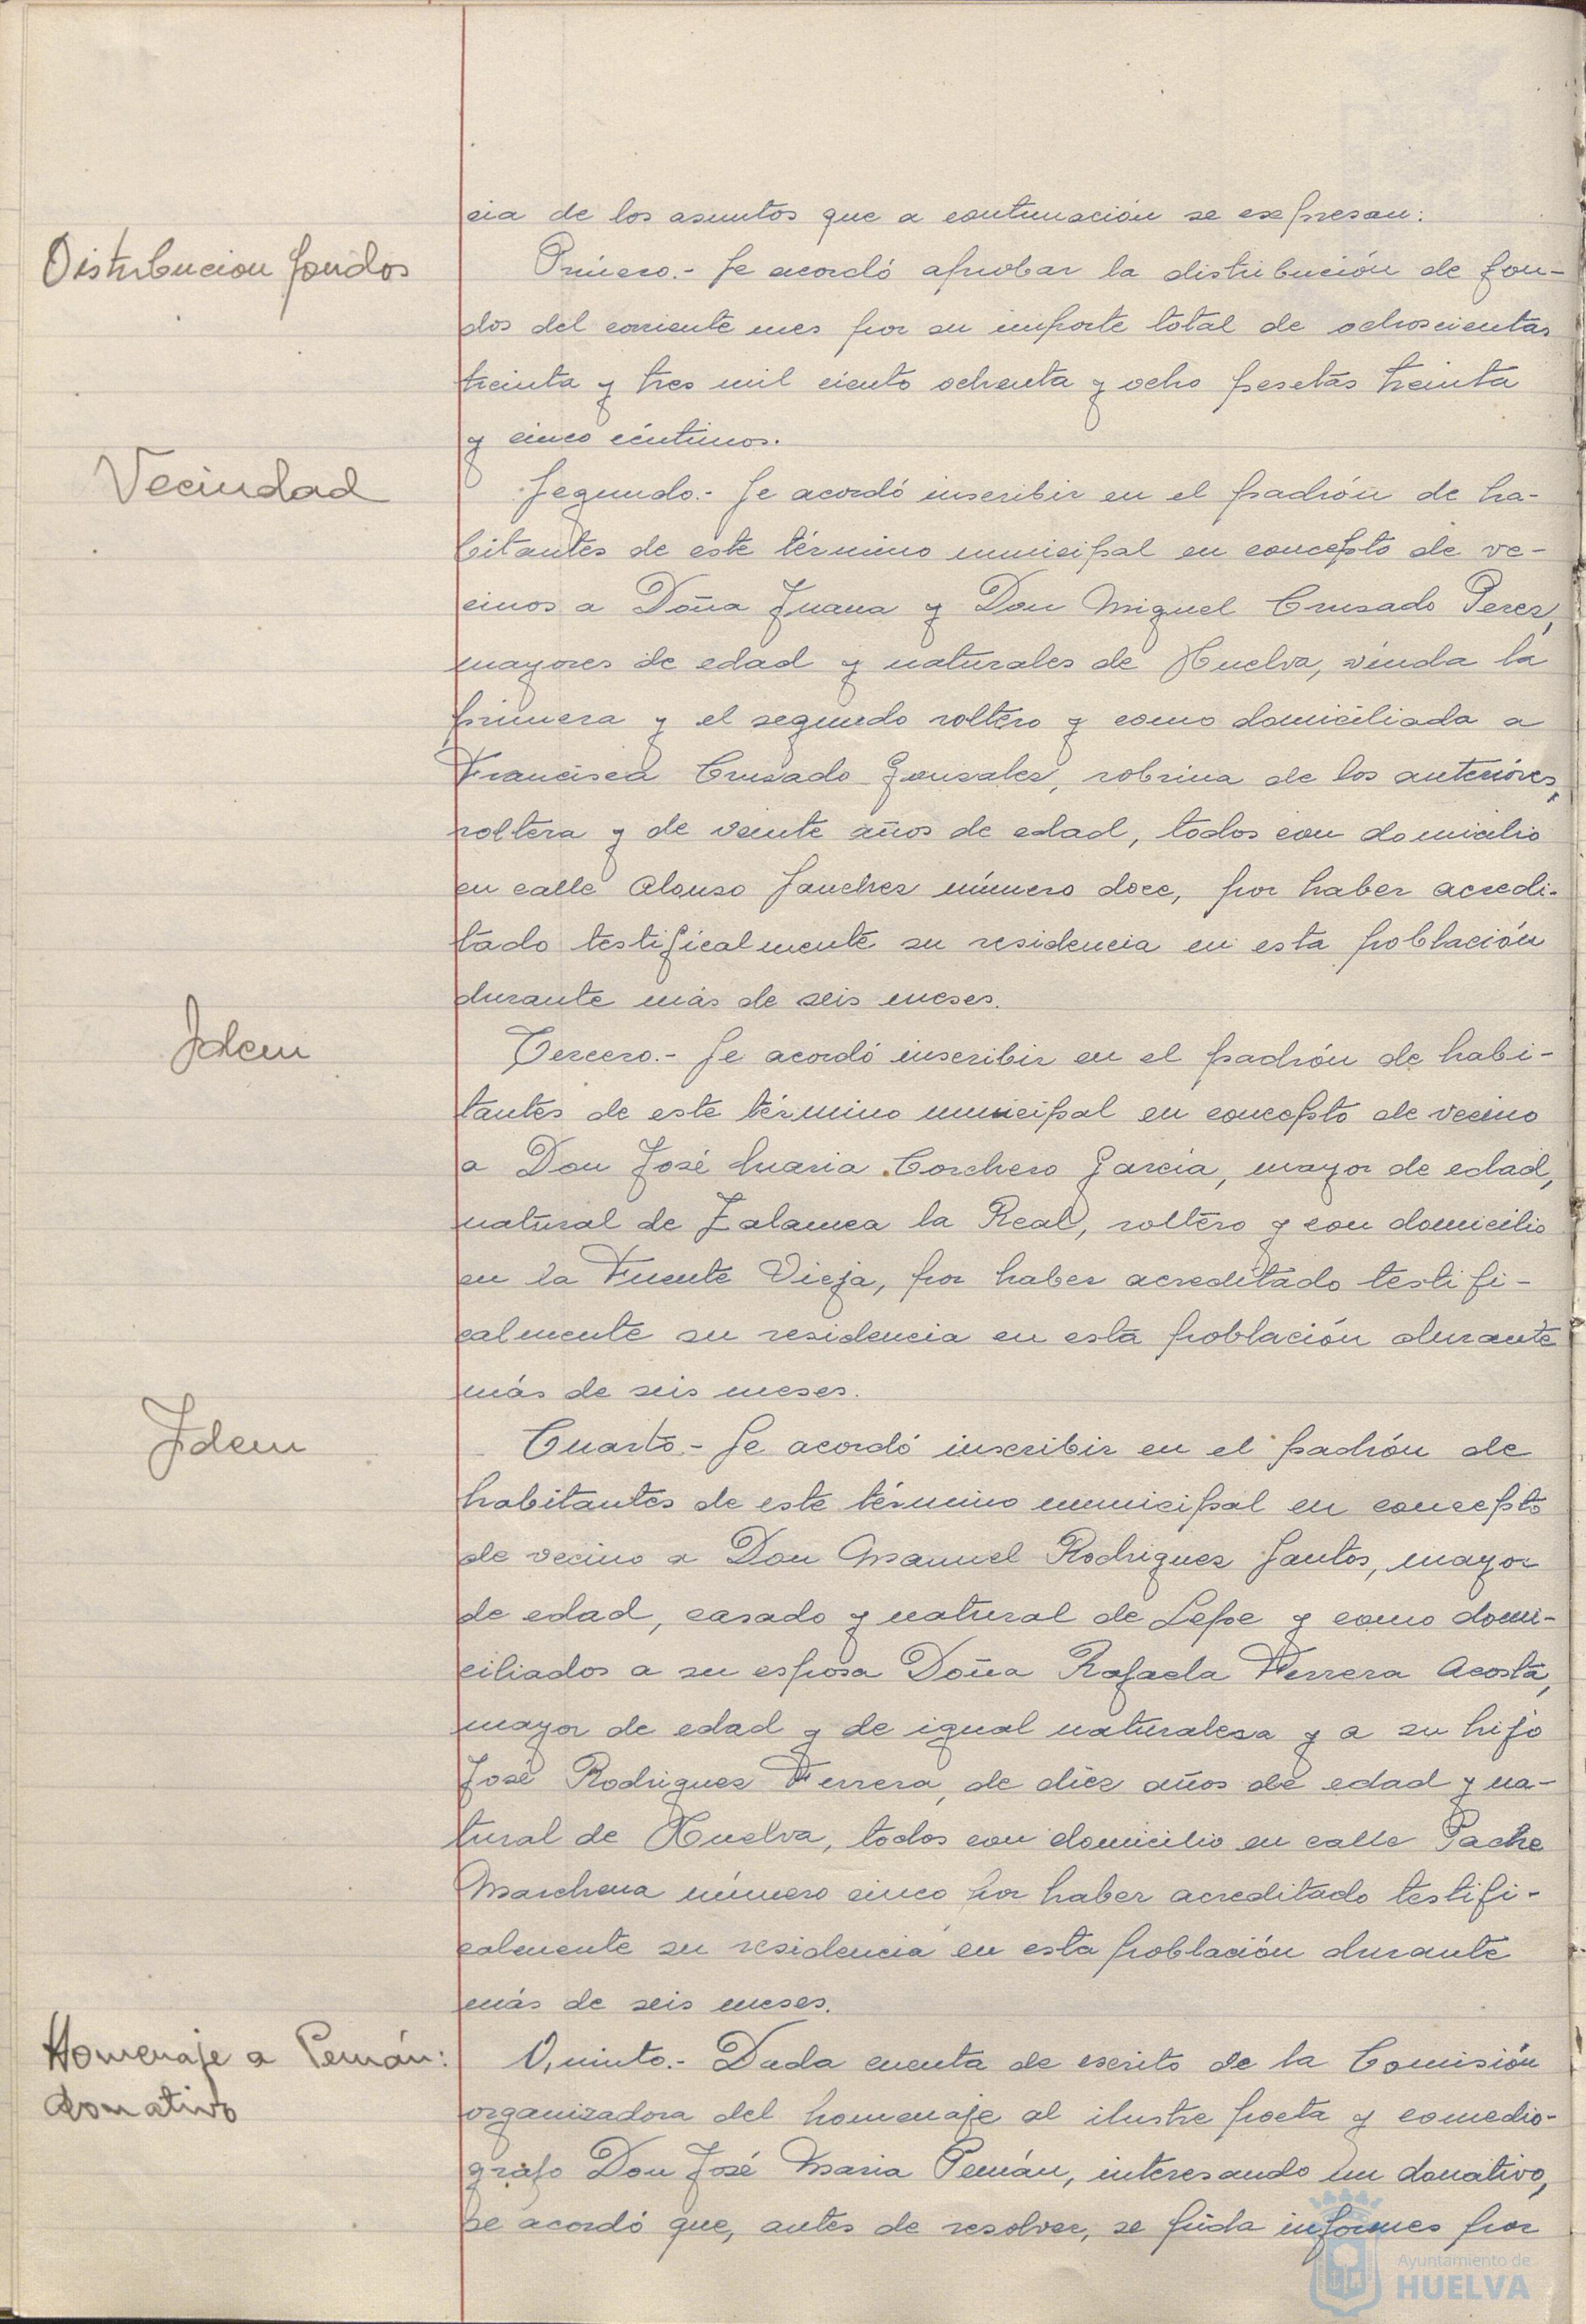 cia de los asuntos que a continuación se expresan:
Distribucion fondos
Primero.- Se acordó aprobar la distribución de fon-
dos del corriente mes por su importe total de ochoscientas
treinta y tres mil ciento ochenta y ocho pesetas treinta
y cinco céntimos.
Vecindad
Segundo.- Se acordó inscribir en el padrón de ha-
bitantes de este término municipal en concepto de ve-
cinos a Doña Juana y Don Miguel Crusado Perez,
mayores de edad y naturales de Huelva, viuda la
primera y el segundo soltero y como domiciliada a
Francisca Crusado Gonsales, sobrina de los anteriores,
soltera y de veinte años de edad, todos con domicilio
en calle Alonso Sanches número doce, por haber acredi-
tado testificalmente su residencia en esta población
durante más de seis meses.
Idem
Tercero.- Se acordó inscribir en el padrón de habi-
tantes de este término municipal en concepto de vecino
a Don José Maria Corchero Garcia, mayor de edad,
natural de Zalamea la Real, soltero y con domicilio
en la Fuente Vieja, por haber acreditado testifi-
calmente su residencia en esta población durante
más de seis meses.
Idem
Cuarto.- Se acordó inscribir en el padrón de
habitantes de este término municipal en concepto
de vecino a Don Manuel Rodrigues Santos, mayor
de edad, casado y natural de Lepe y como domi-
ciliados a su esposa Doña Rafaela Ferrera Acosta,
mayor de edad y de igual naturalesa y a su hijo
José Rodrigues Ferrera, de dies años de edad y na-
tural de Huelva, todos con domicilio en calle Padre
Marchena número cinco por haber acreditado testifi-
calmente su residencia en esta población durante
más de seis meses.
Homenaje a Pemán:
donativo
Quinto.- Dada cuenta de escrito de la Comisión
organizadora del homenaje al ilustre poeta y comedio-
grafo Don José Maria Pemán, interesando un donativo,
se acordó que, antes de resolver, se pida informes por
Ayuntamiento de
HUELVA